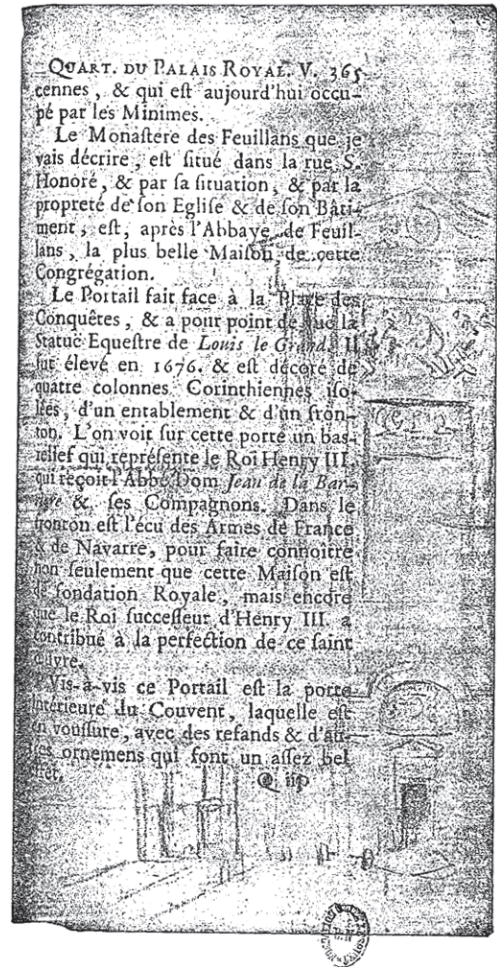 QUART. DU PALAIS ROYAL. V. 365
cennes, & qui eſt aujourd'hui occu-
pé par les Minimes.
Le Monaſtere des Feuillans que je
vais décrire, eſt ſitué dans la rue S.
Honoré, & par ſa ſituation, & par la
propreté de ſon Egliſe & de ſon Bâti-
ment, eſt, après l'Abbaye de Feuil-
lans, la plus belle Maiſon de cette
Congrégation.
Le Portail fait face à la Place des
Conquêtes, & a pour point de vuë la
Statuë Equeſtre de Louis le Grand. Il
fut élevé en 1676. & eſt décoré de
quatre colonnes Corinthiennes iſo-
lées, d'un entablement & d'un fron-
ton. L'on voit ſur cette porte un bas-
relief qui repréſente le Roi Henry III.
qui reçoit l'Abbé Dom Jean de la Bar-
riere & ſes Compagnons. Dans le
fronton eſt l'écu des Armes de France
& de Navarre, pour faire connoitre
non ſeulement que cette Maiſon eſt
de fondation Royale, mais encore
que le Roi ſucceſſeur d'Henry III. a
contribué à la perfection de ce ſaint
œuvre.
Vis-à-vis ce Portail eſt la porte
intérieure du Couvent, laquelle eſt
en vouſſure, avec des refands & d'au-
tres ornemens qui font un aſſez bel
effet.
Q iij